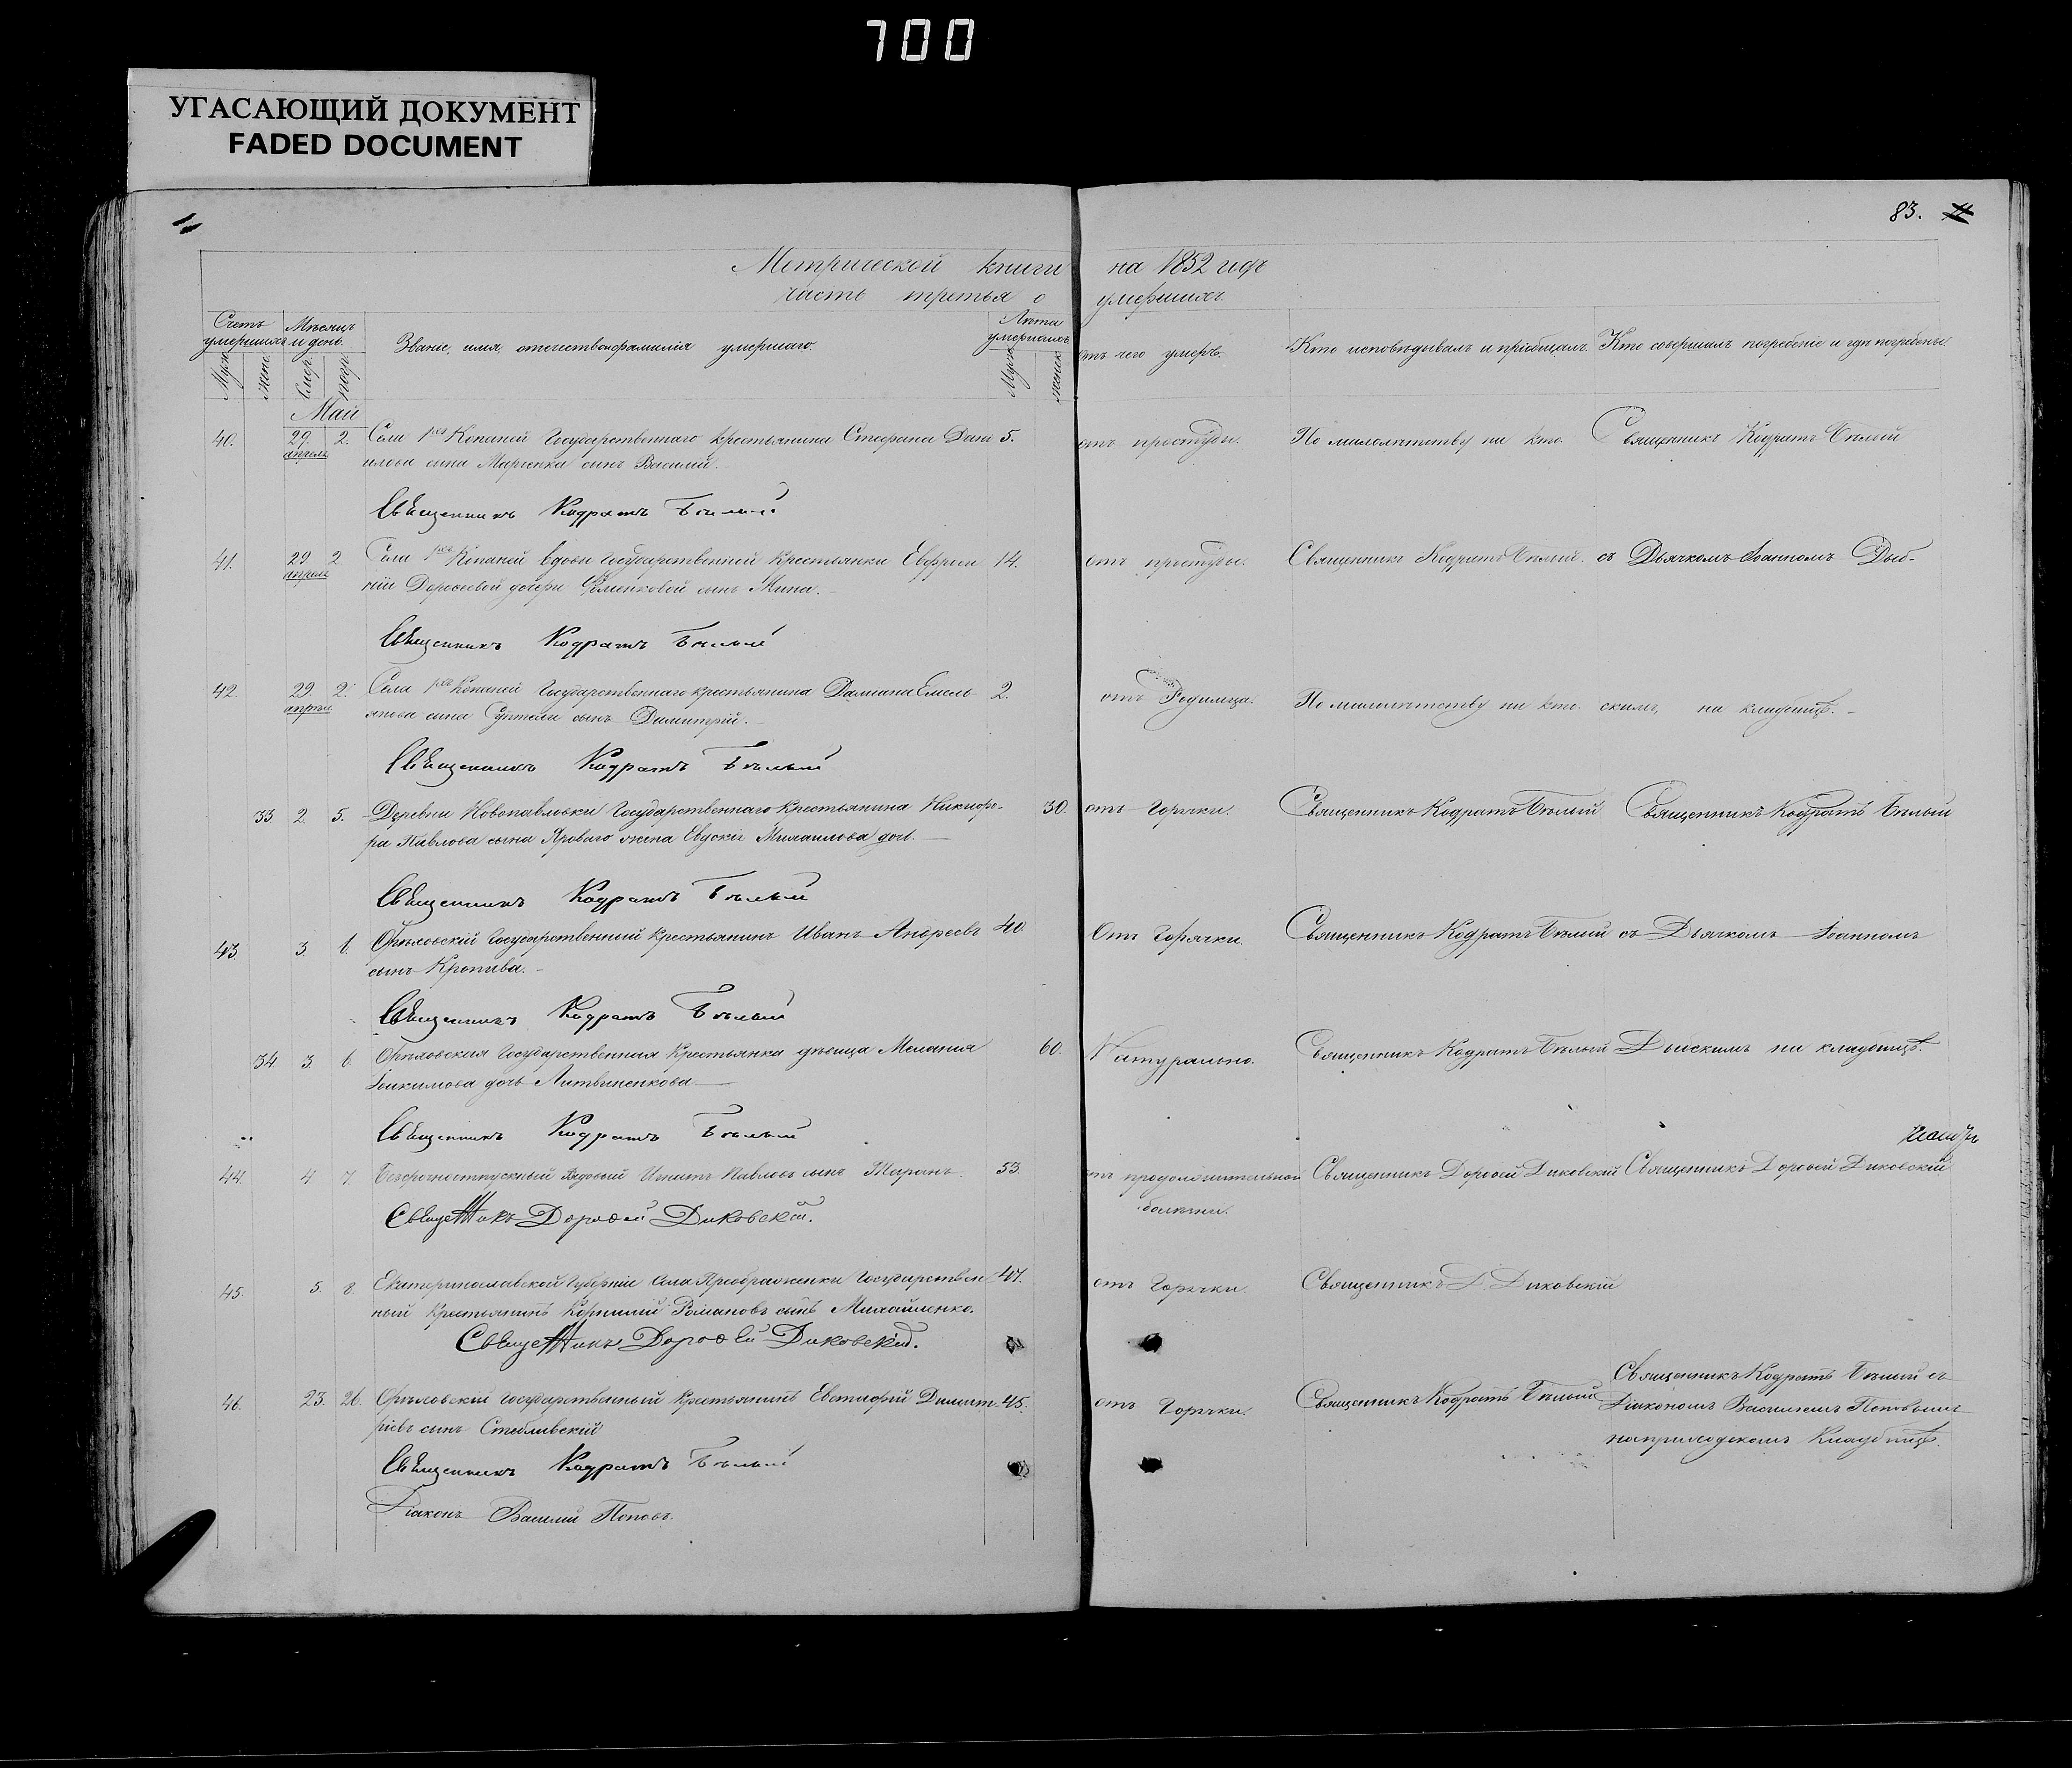 700
УГАСАЮЩИЙ ДОКУМЕНТ
FADED DOCUMENT
83.
Метрической книги на 1852 годъ
часть третья о умершихъ.
Счетъ умершихъ
Мѣсяцъ и день.
Званіе, имя, отечество и фамилія умершаго.
Лѣта умершаго
отъ чего умеръ.
Кто исповѣдывалъ и пріобщалъ.
Кто совершилъ погребеніе и гдѣ погребены
Муж. Жен. Смер. Погр. Муж. Женск.
Май
40. 29. апреля 2. Села Копаней Государственнаго крестьянина Стефана Дани 5. отъ простуды. По малолѣтству ни кто. Священникъ Кодратъ Бѣлый
илова сына Марченка сынъ Василій.
Священникъ Кодратъ Бѣлый
41. 29 апреля 2 Села Копаней вдовы Государственной Крестьянки Евфроси 14. отъ простуды. Священникъ Кодратъ Бѣлый. съ Дьячкомъ Іоанномъ Дыб-
ніи дочери сынъ Мина.
Священникъ Кодратъ Бѣлый
42. 29. апреля 2. Села Копаней Государственнаго крестьянина Даміана Емель 2. отъ Родимца. По малолѣтству ни кто. скимъ, на кладбищѣ.
янова сына сынъ Димитрій.
Священникъ Кодратъ Бѣлый
33 2. 5. Деревни Новопавловки Государственнаго Крестьянина Никифо- 30. отъ Горячки. Священникъ Кодратъ Бѣлый Священникъ Кодратъ Бѣлый
ра Павлова сына Яроваго жена Михаилова дочь.
Священникъ Кодратъ Бѣлый
43. 3. 6. Орѣховскій Государственный крестьянинъ Иванъ Андреевъ 40 Отъ Горячки. Священникъ Кодратъ Бѣлый съ Дьячкомъ Іоанномъ
сынъ Кропива.
Священникъ Кодратъ Бѣлый
34. 3. 6. Орѣховская Государственная Крестьянка дѣвица Меланія 60. Натурально. Священникъ Кодратъ Бѣлый Дыбскимъ на кладбищѣ.
Іоакимова дочь Литвиненкова
Священникъ Кодратъ Бѣлый
44. 4 7. Безсрочноотпускный Рядовый Игнатъ Павловъ сынъ Таранъ. 53. отъ продолжительной Священникъ Дорофей Диковскій Священникъ Дорофей Диковскій
болѣзни.
Священникъ Дорофей Диковскій.
45. 5. 8. Екатеринославской Губерніи Села Преображенки Государствен 47. отъ Горячки. Священникъ Д. Диковскій
ный Крестьянинъ Корнилій Романовъ сынъ Михайленко.
Священникъ Дорофей Диковскій.
46. 23. 26. Орѣховскій Государственный Крестьянинъ Евстафій Димит 45. отъ Горячки. Священникъ Кодратъ Бѣлый Священникъ Кодратъ Бѣлый съ
ріевъ сынъ Стеблевскій Діакономъ Василіемъ Поповымъ
на приходскомъ Кладбищѣ.
Священникъ Кодратъ Бѣлый
Діаконъ Василій Поповъ.